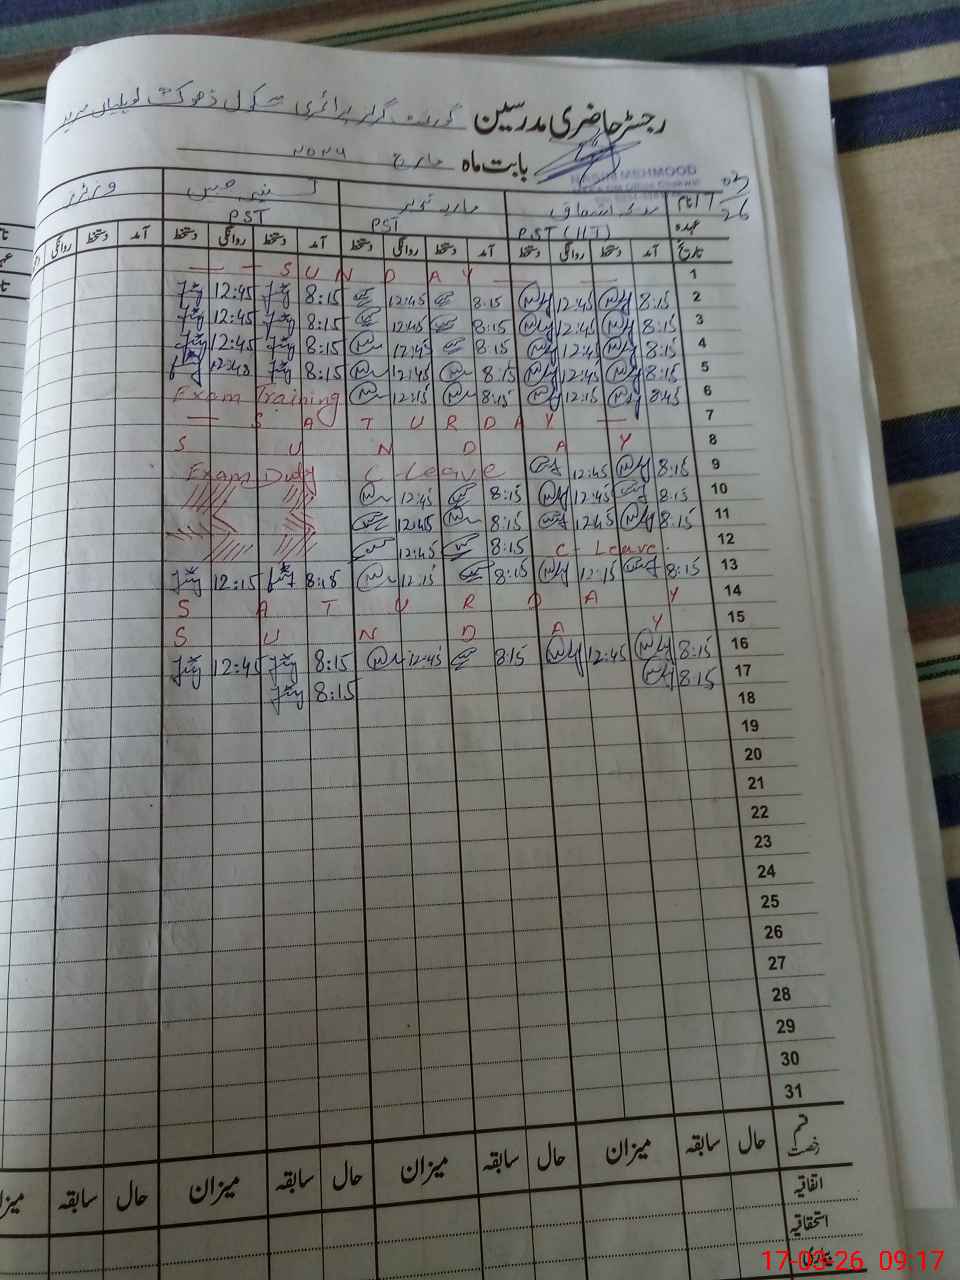 رجسٹر حاضری مدرسین گورنمنٹ گرلز پرائمری سکول ڈھوک
بابت ماہ مارچ ۲۰۲۶
NASIM MEHMOOD
17/03/26
نام
عہدہ PST (IIT) PST PST
تاریخ آمد دستخط روانگی دستخط آمد دستخط روانگی دستخط آمد دستخط روانگی دستخط آمد دستخط روانگی
1 SUNDAY
2 8:15 12:45 8:15 12:45 8:15 12:45
3 8:15 12:45 8:15 12:45 8:15 12:45
4 8:15 12:45 8:15 12:45 8:15 12:45
5 8:15 12:45 8:15 12:45 8:15 12:45
6 8:15 12:15 8:15 12:15 Exam Training
7 SATURDAY
8 SUNDAY
9 8:15 12:45 C Leave Exam Duty
10 8:15 12:45 8:15 12:45
11 8:15 12:45 8:15 12:45
12 C-Leave. 8:15 12:45
13 8:15 12:15 8:15 12:15 8:15 12:15
14 SATURDAY
15 SUNDAY
16 8:15 12:45 8:15 12:45 8:15 12:45
17 8:15 8:15
18
19
20
21
22
23
24
25
26
27
28
29
30
31
قسم رخصت حال سابقہ میزان حال سابقہ میزان حال سابقہ میزان حال سابقہ میزان
اتفاقیہ
استحقاقیہ
بیماری
17-03-26 09:17